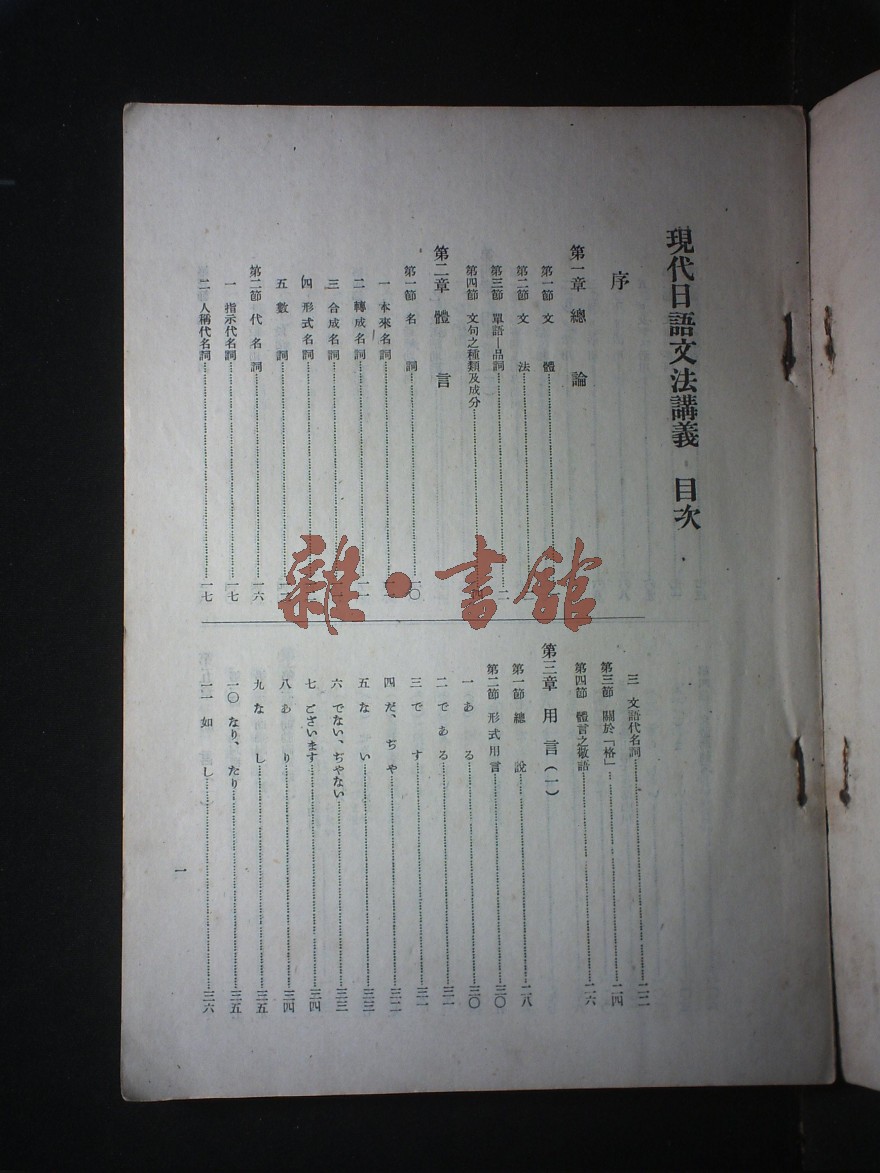 現代日語文法講義 目次
序
第一章 總論
第一節 文體
第二節 文法
第三節 單語—品詞……二
第四節 文句之種類及成分
第二章 體言
第一節 名詞……一〇
一 本來名詞
二 轉成名詞……一一
三 合成名詞
四 形式名詞
五 數詞
第二節 代名詞……一六
一 指示代名詞……一七
二 人稱代名詞……一七
三 文語代名詞……二二
第三節 關於「格」……二四
第四節 體言之敬語……二六
第三章 用言(一)
第一節 總說……二八
第二節 形式用言……三〇
一 ある……三〇
二 である……三一
三 です……三一
四 だ、ぢや……三二
五 ない……三三
六 でない、ぢやない……三三
七 ございます……三四
八 あり……三四
九 なし……三五
一〇 なり、たり……三五
一一 如し……三六
一
雜·書館